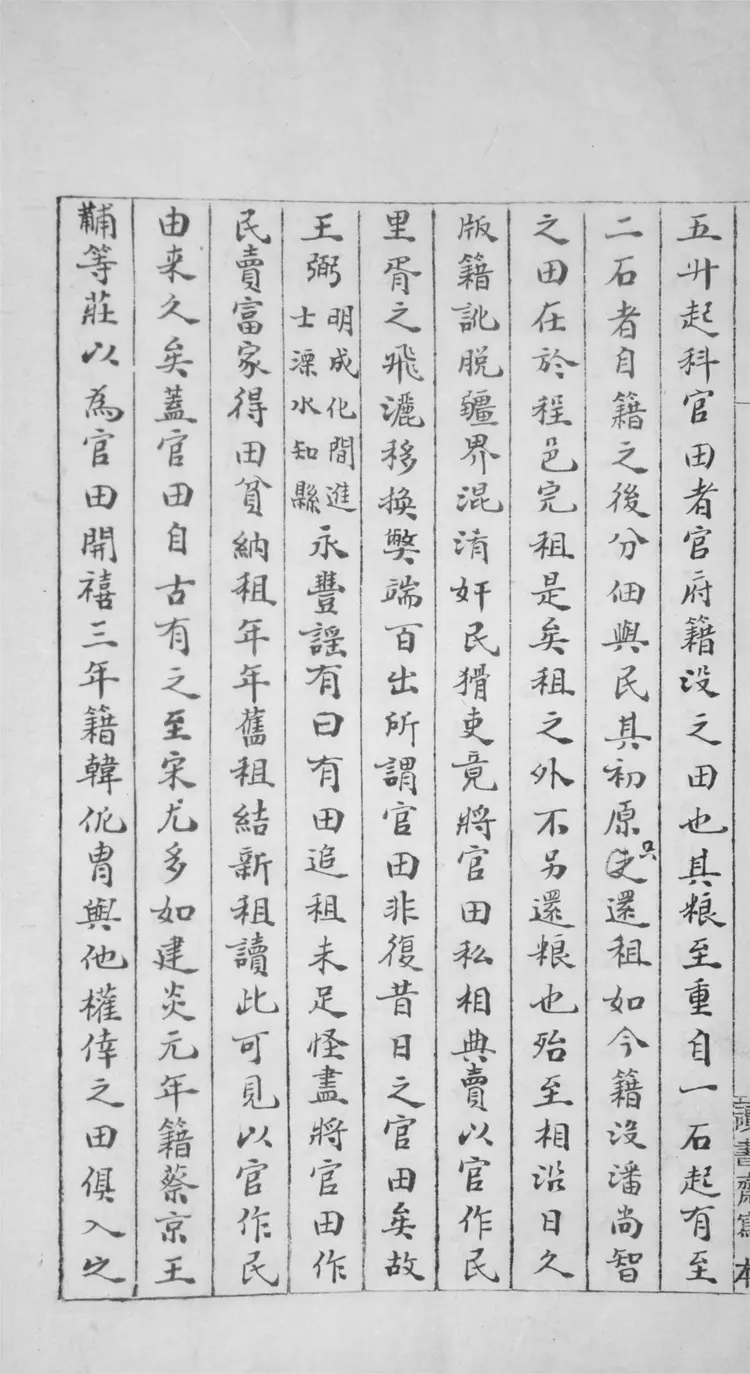 五升起科官田者官府籍没之田也其粮至重自一石起有至
二石者自籍之後分佃與民其初原只還租如今籍没潘尚智
之田在於程邑完租是矣租之外不另還粮也殆至相沿日久
版籍訛脱疆界混淆奸民猾吏竟將官田私相典賣以官作民
里胥之飛灑移換獘端百出所謂官田非復昔日之官田矣故
王弼明成化間進士溧水知縣永豐謡有曰有田追租未足怪盡將官田作
民賣富家得田貧納租年年舊租結新租讀此可見以官作民
由来久矣蓋官田自古有之至宋尤多如建炎元年籍蔡京王
黼等莊以為官田開禧三年籍韓侂冑與他權倖之田俱入之
讀書齋寫本